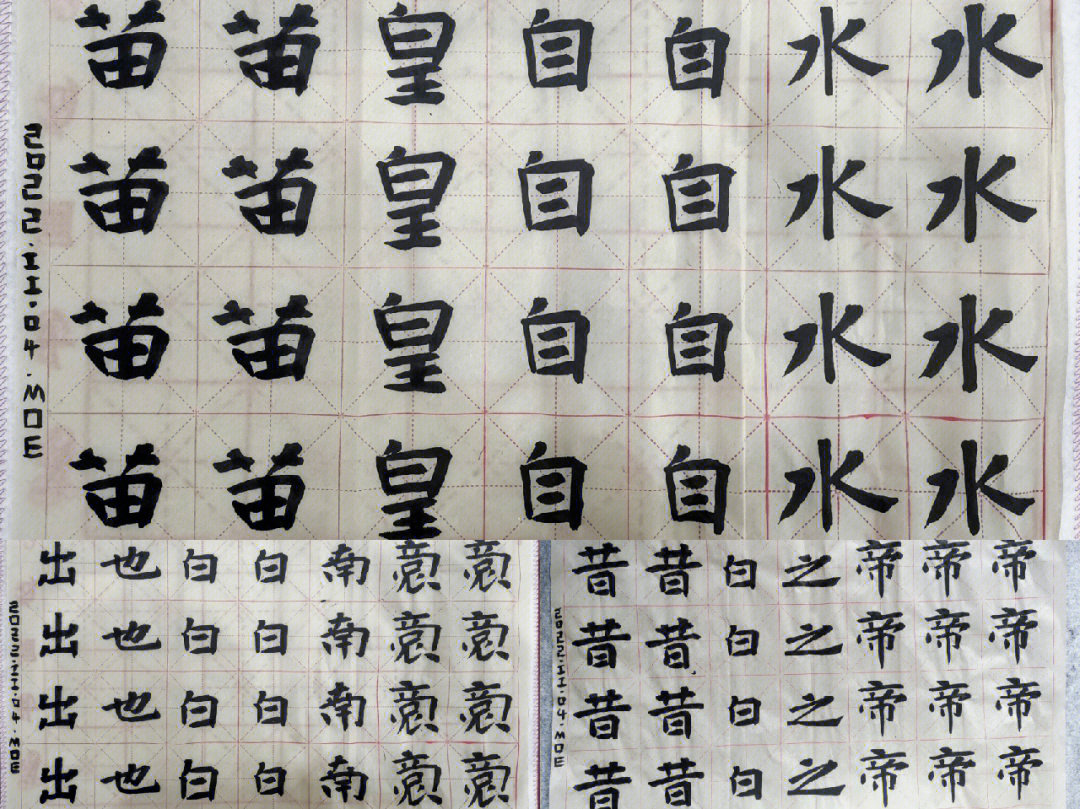 苗苗皇自自水水
苗苗皇自自水水
苗苗皇自自水水
苗苗皇自自水水
2022.II.04.MOE
出也白白南
出也白白南
出也白白南
出也白白南
2022.II.04.MOE
昔昔白之帝帝帝
昔昔白之帝帝帝
昔昔白之帝帝帝
昔昔白之帝帝帝
2022.II.04.MOE